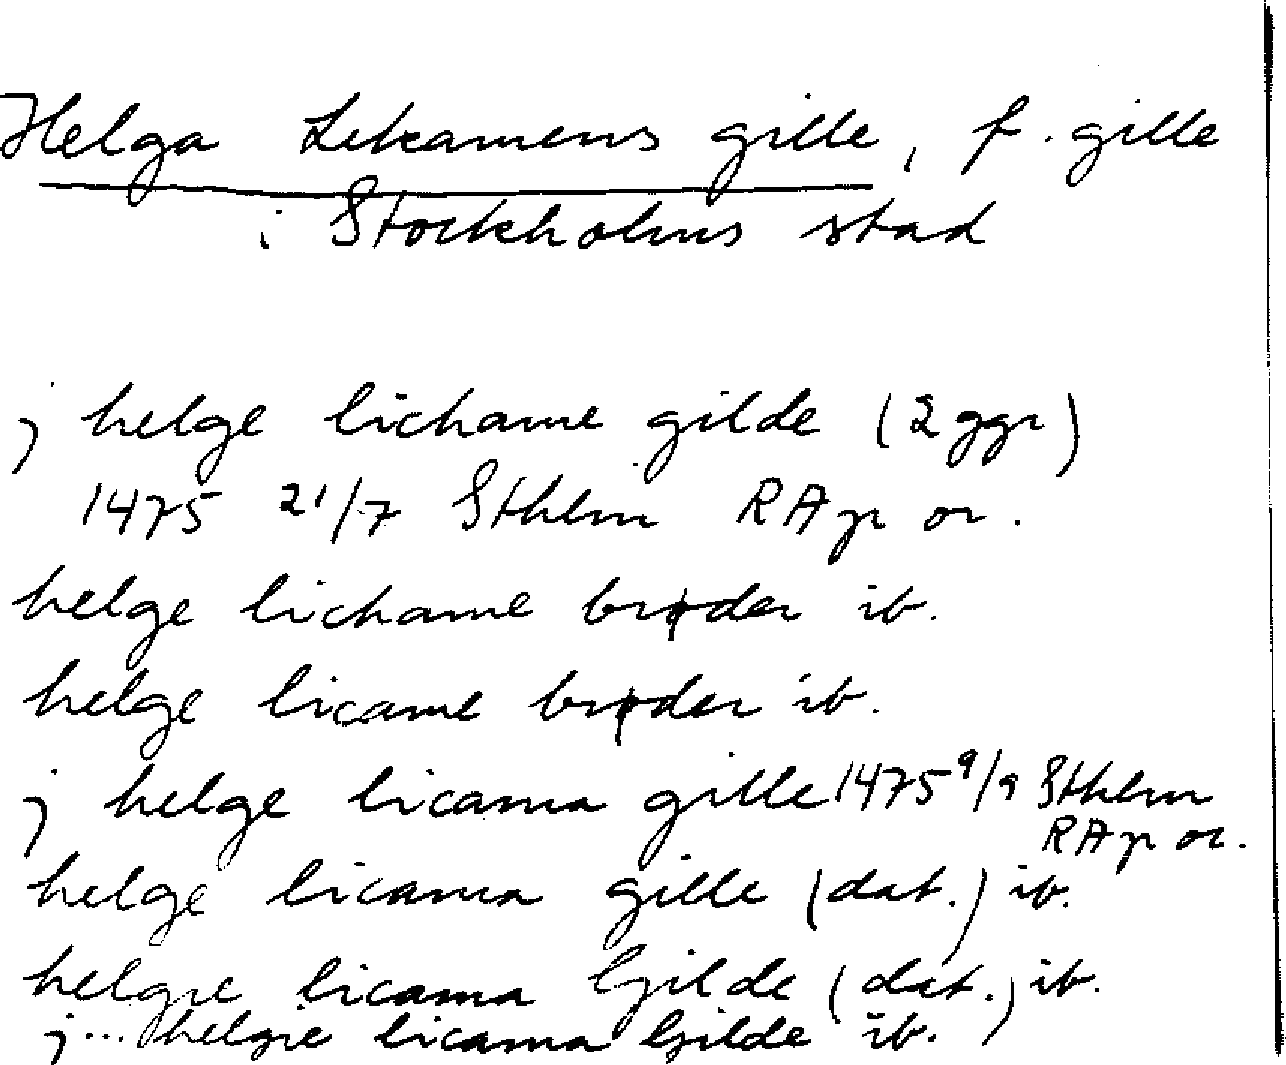 Helga Lekamens gille, f. gille
i Stockholms stad
j helge lichame gilde (2 ggr)
1475 21/7 Sthlm RAp or.
helge lichame brøder ib.
helge licame brøder ib.
j helge licama gille 1475 9/9 Sthlm
RAp or.
helge licama gille (dat.) ib.
helgie licama Gilde (dat.) ib.
j... helgie licama Gilde ib.